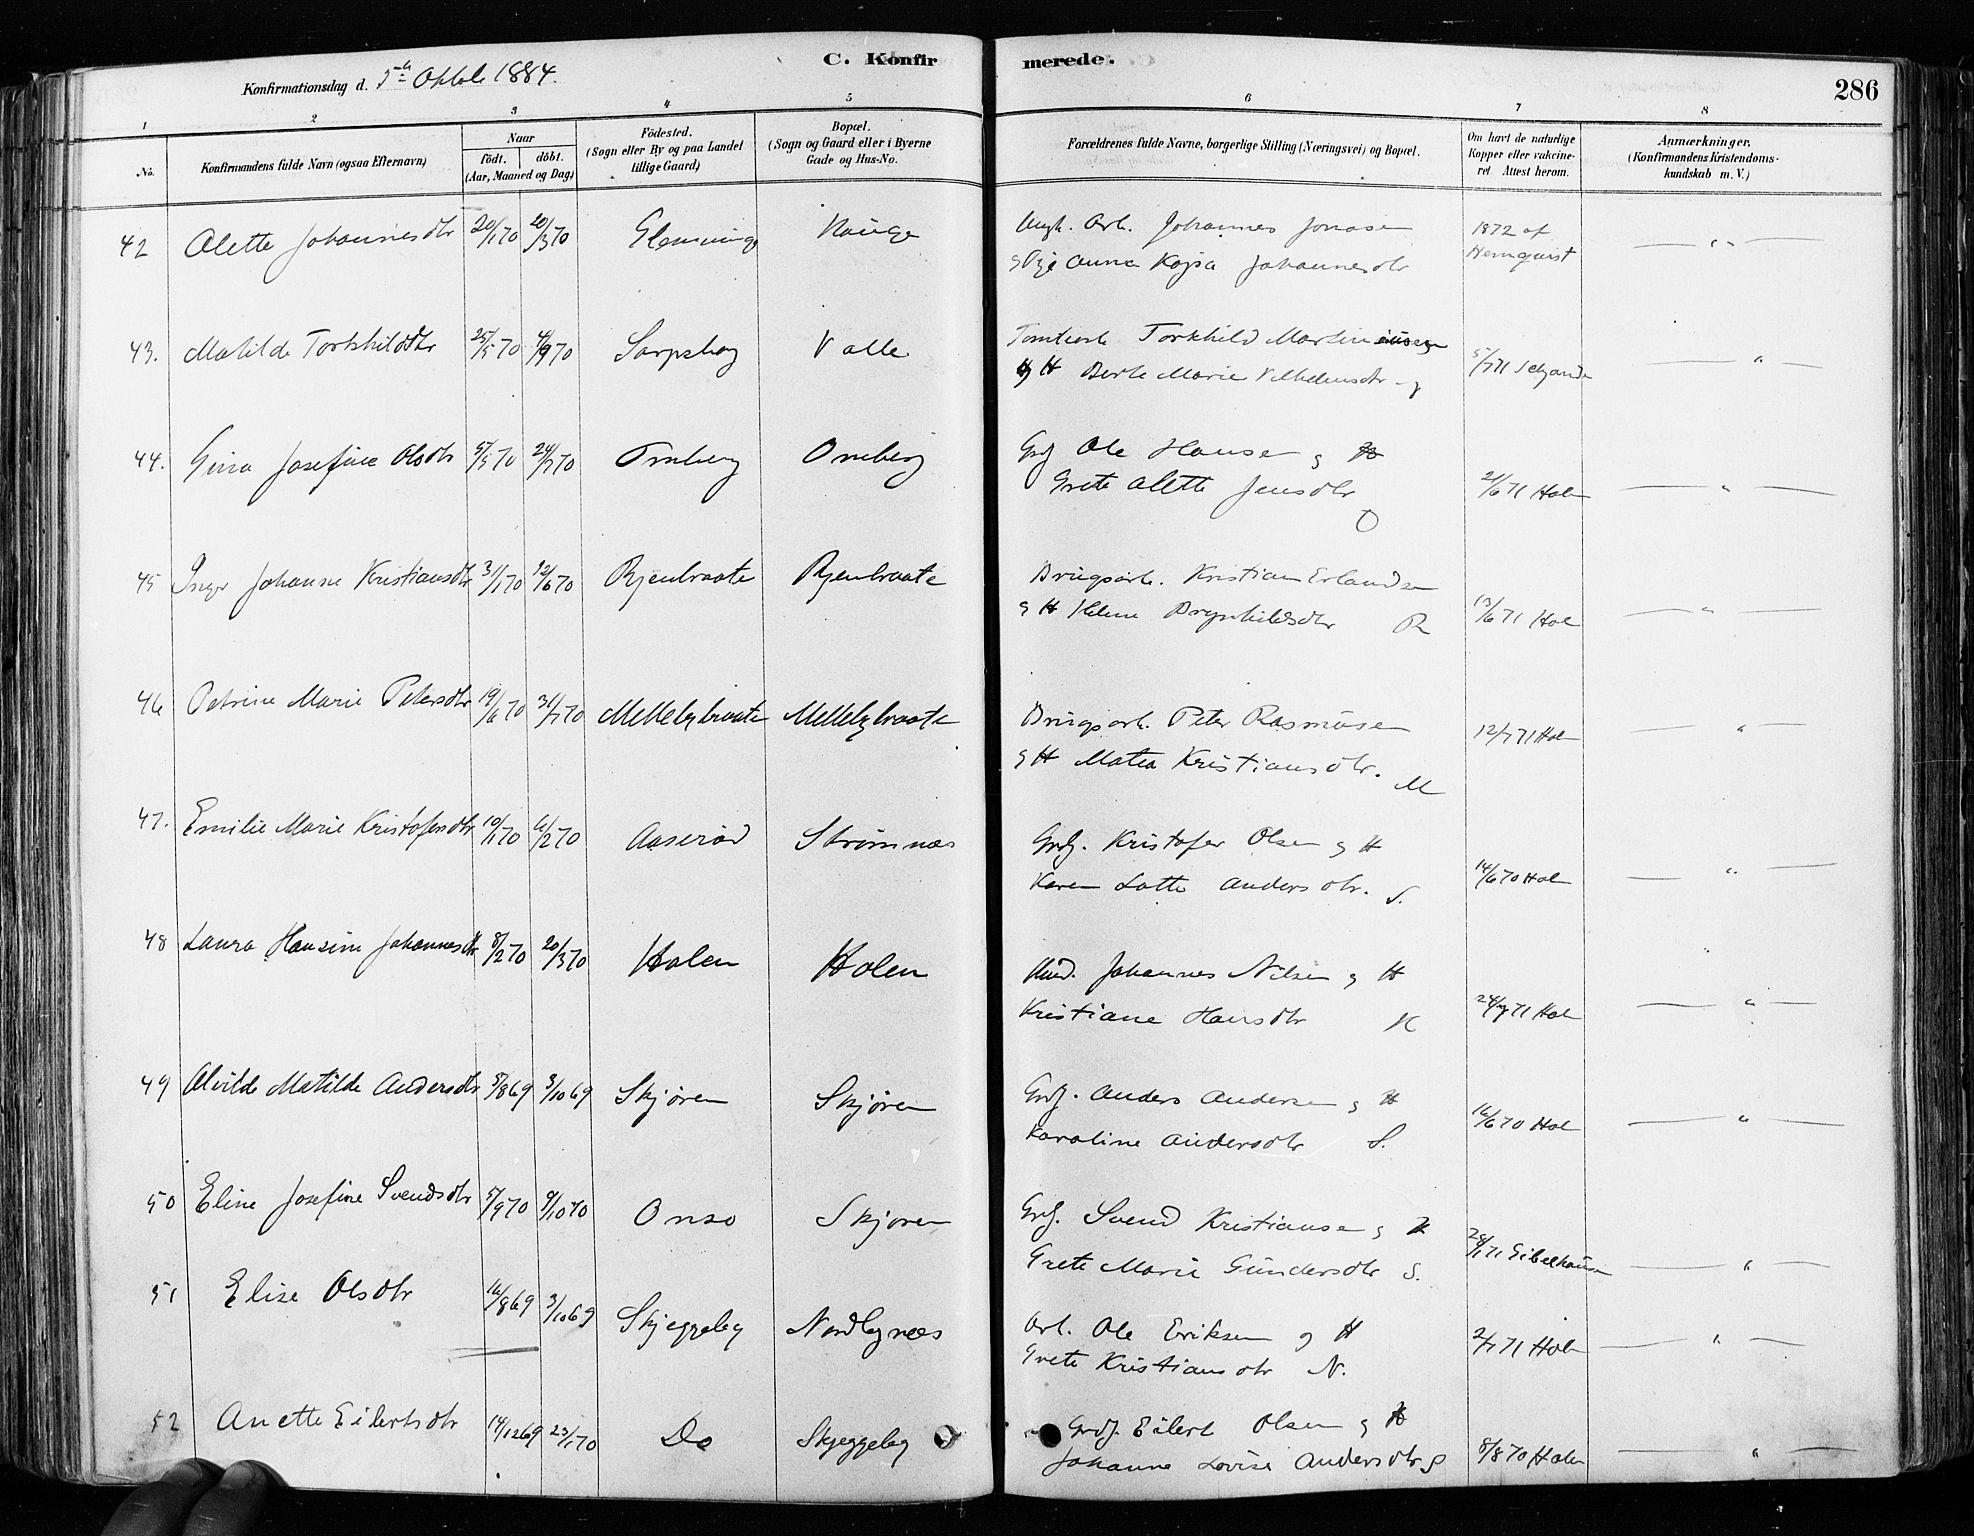 C. Konfirmerede.
286
Konfirmationsdag d. 5te Oktob 1884.
1 2 3 4 5 6 7 8
No.
Konfirmandens fulde Navn (ogsaa Efternavn)
Naar
födt. döbt.
(Aar, Maaned og Dag)
Födested.
(Sogn eller By og paa Landet
tillige Gaard)
Bopæl.
(Sogn og Gaard eller i Byerne
Gade og Hus-No.
Forældrenes fulde Navne, borgerlige Stilling (Næringsvei) og Bopæl.
Om havt de naturlige
Kopper eller vakcine-
ret Attest herom.
Anmærkninger,
(Konfirmandens Kristendoms-
kundskab m. V.)
42 Alette Johannesdtr 20/1 70 20/3 70 Glemminge Hauge Johannes Jonasen 1872 af
Anna Kajsa Johannesdtr Hernquist
43. Matilde Torkhildsdtr 25/5 70 4/9 70 Sarpsborg Valle Tomtearb Torkhild Martin
og H Berte Marie Vilhelmsdtr 5/7 71
44. Gina Josefine Olsdtr 5/5 70 24/7 70 Omberg Omberg Grdf Ole Hansen og H
Grete Alette Jensdtr O 21/6 71 Holm
45 Inger Johanne Kristiansdtr 31/1 70 12/6 70 Rjenbraate Rjenbraate Brugsarb. Kristian Erlandsen
og H Helene Brynhildsdtr R 13/6 71 Hol
46 Petrine Marie Petersdtr 19/6 70 31/7 70 Mellebybraate Mellebybraate Brugsarb. Peter Rasmusen
og H Matea Kristiansdtr. M 12/7 71 Holm
47. Emilie Marie Kristofersdtr 10/1 70 6/2 70 Aaserød Strømnæs Grdf. Kristofer Olsen og H
Karen Lotte Andersdtr. S. 14/6 70 Hol
48 Laura Hansine Johannesdtr 8/2 70 20/3 70 Holen Holen Husd. Johannes Nilsen og H
Kristiane Hansdtr H 24/7 71 Hol
49 Alvilde Matilde Andersdtr 5/8 69 3/10 69 Skjøren Skjøren Grdf. Anders Andersen og H
Karoline Andersdtr S. 16/6 70 Hol
50 Eline Josefine Svendsdtr 5/9 70 9/10 70 Onsø Skjøren Grdf. Svend Kristiansen og H
Grete Marie Gundersdtr S. 28/1 71
51 Elise Olsdtr 16/8 69 3/10 69 Skjeggeby Nordbynæs Arb. Ole Eriksen og H
Grete Kristiansdtr N. 2/7 71 Holm
52 Anette Eilertsdtr 14/12 69 23/1 70 Do Skjeggeby Grdf. Eilert Olsen og H
Johanne Lovise Andersdtr S 8/8 70 Holm